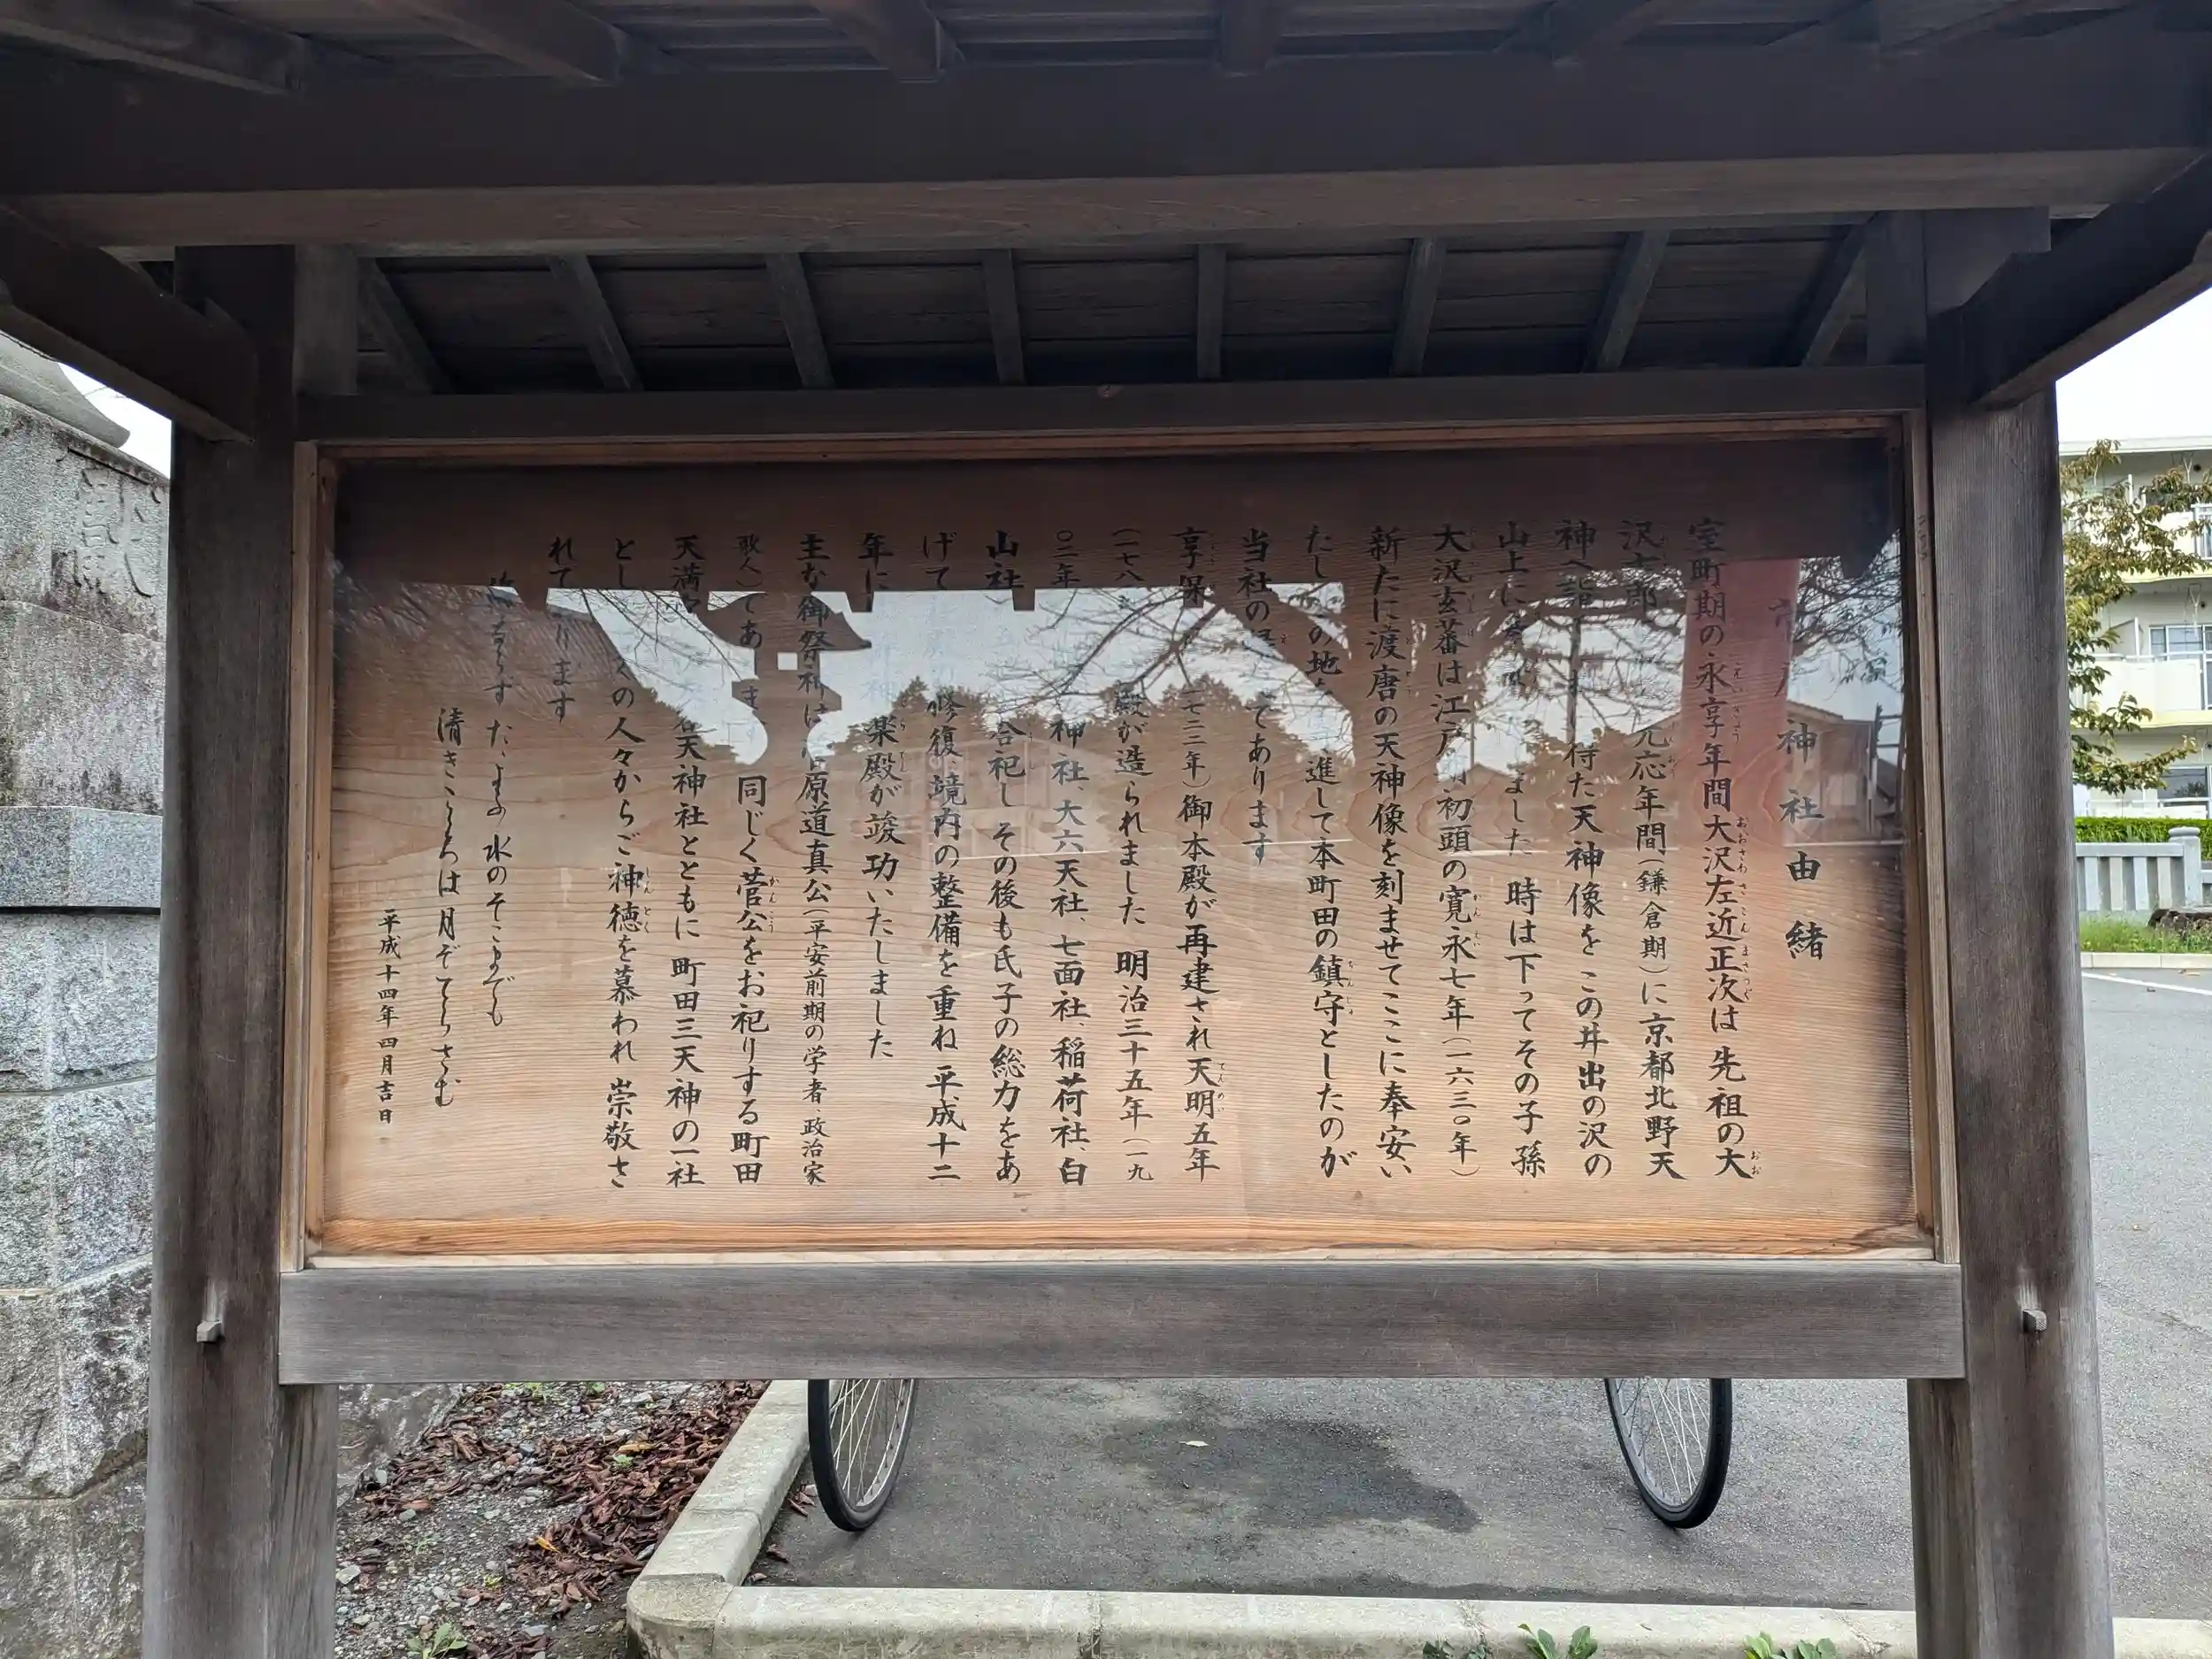 神社由緒
室町期の永享年間大沢左近正次は 先祖の大
沢 郎 元応年間(鎌倉期)に京都北野天
神へ詣 侍た天神像を この井出の沢の
山上に ました 時は下ってその子孫
大沢玄蕃は江戸 初頭の寛永七年(一六三〇年)
新たに渡唐の天神像を刻ませてここに奉安い
たし の地 進して本町田の鎮守としたのが
当社の てあります
享保 一七三三年)御本殿が再建され天明五年
(一七八 殿が造られました 明治三十五年(一九
〇二年 神社、大六天社、七面社、稲荷社、白
山社 合祀し その後も氏子の総力をあ
げて 修復、境内の整備を重ね 平成十二
年に 楽殿が竣功いたしました
主な御祭神は 原道真公(平安前期の学者、政治家
歌人)であ ま 同じく菅公をお祀りする町田
天満 天神社とともに 町田三天神の一社
とし の人々からご神徳を慕われ 崇敬さ
れて ります
ならず たゝよふ 水のそこまでも
清きこゝろは 月ぞてらさむ
平成十四年四月吉日